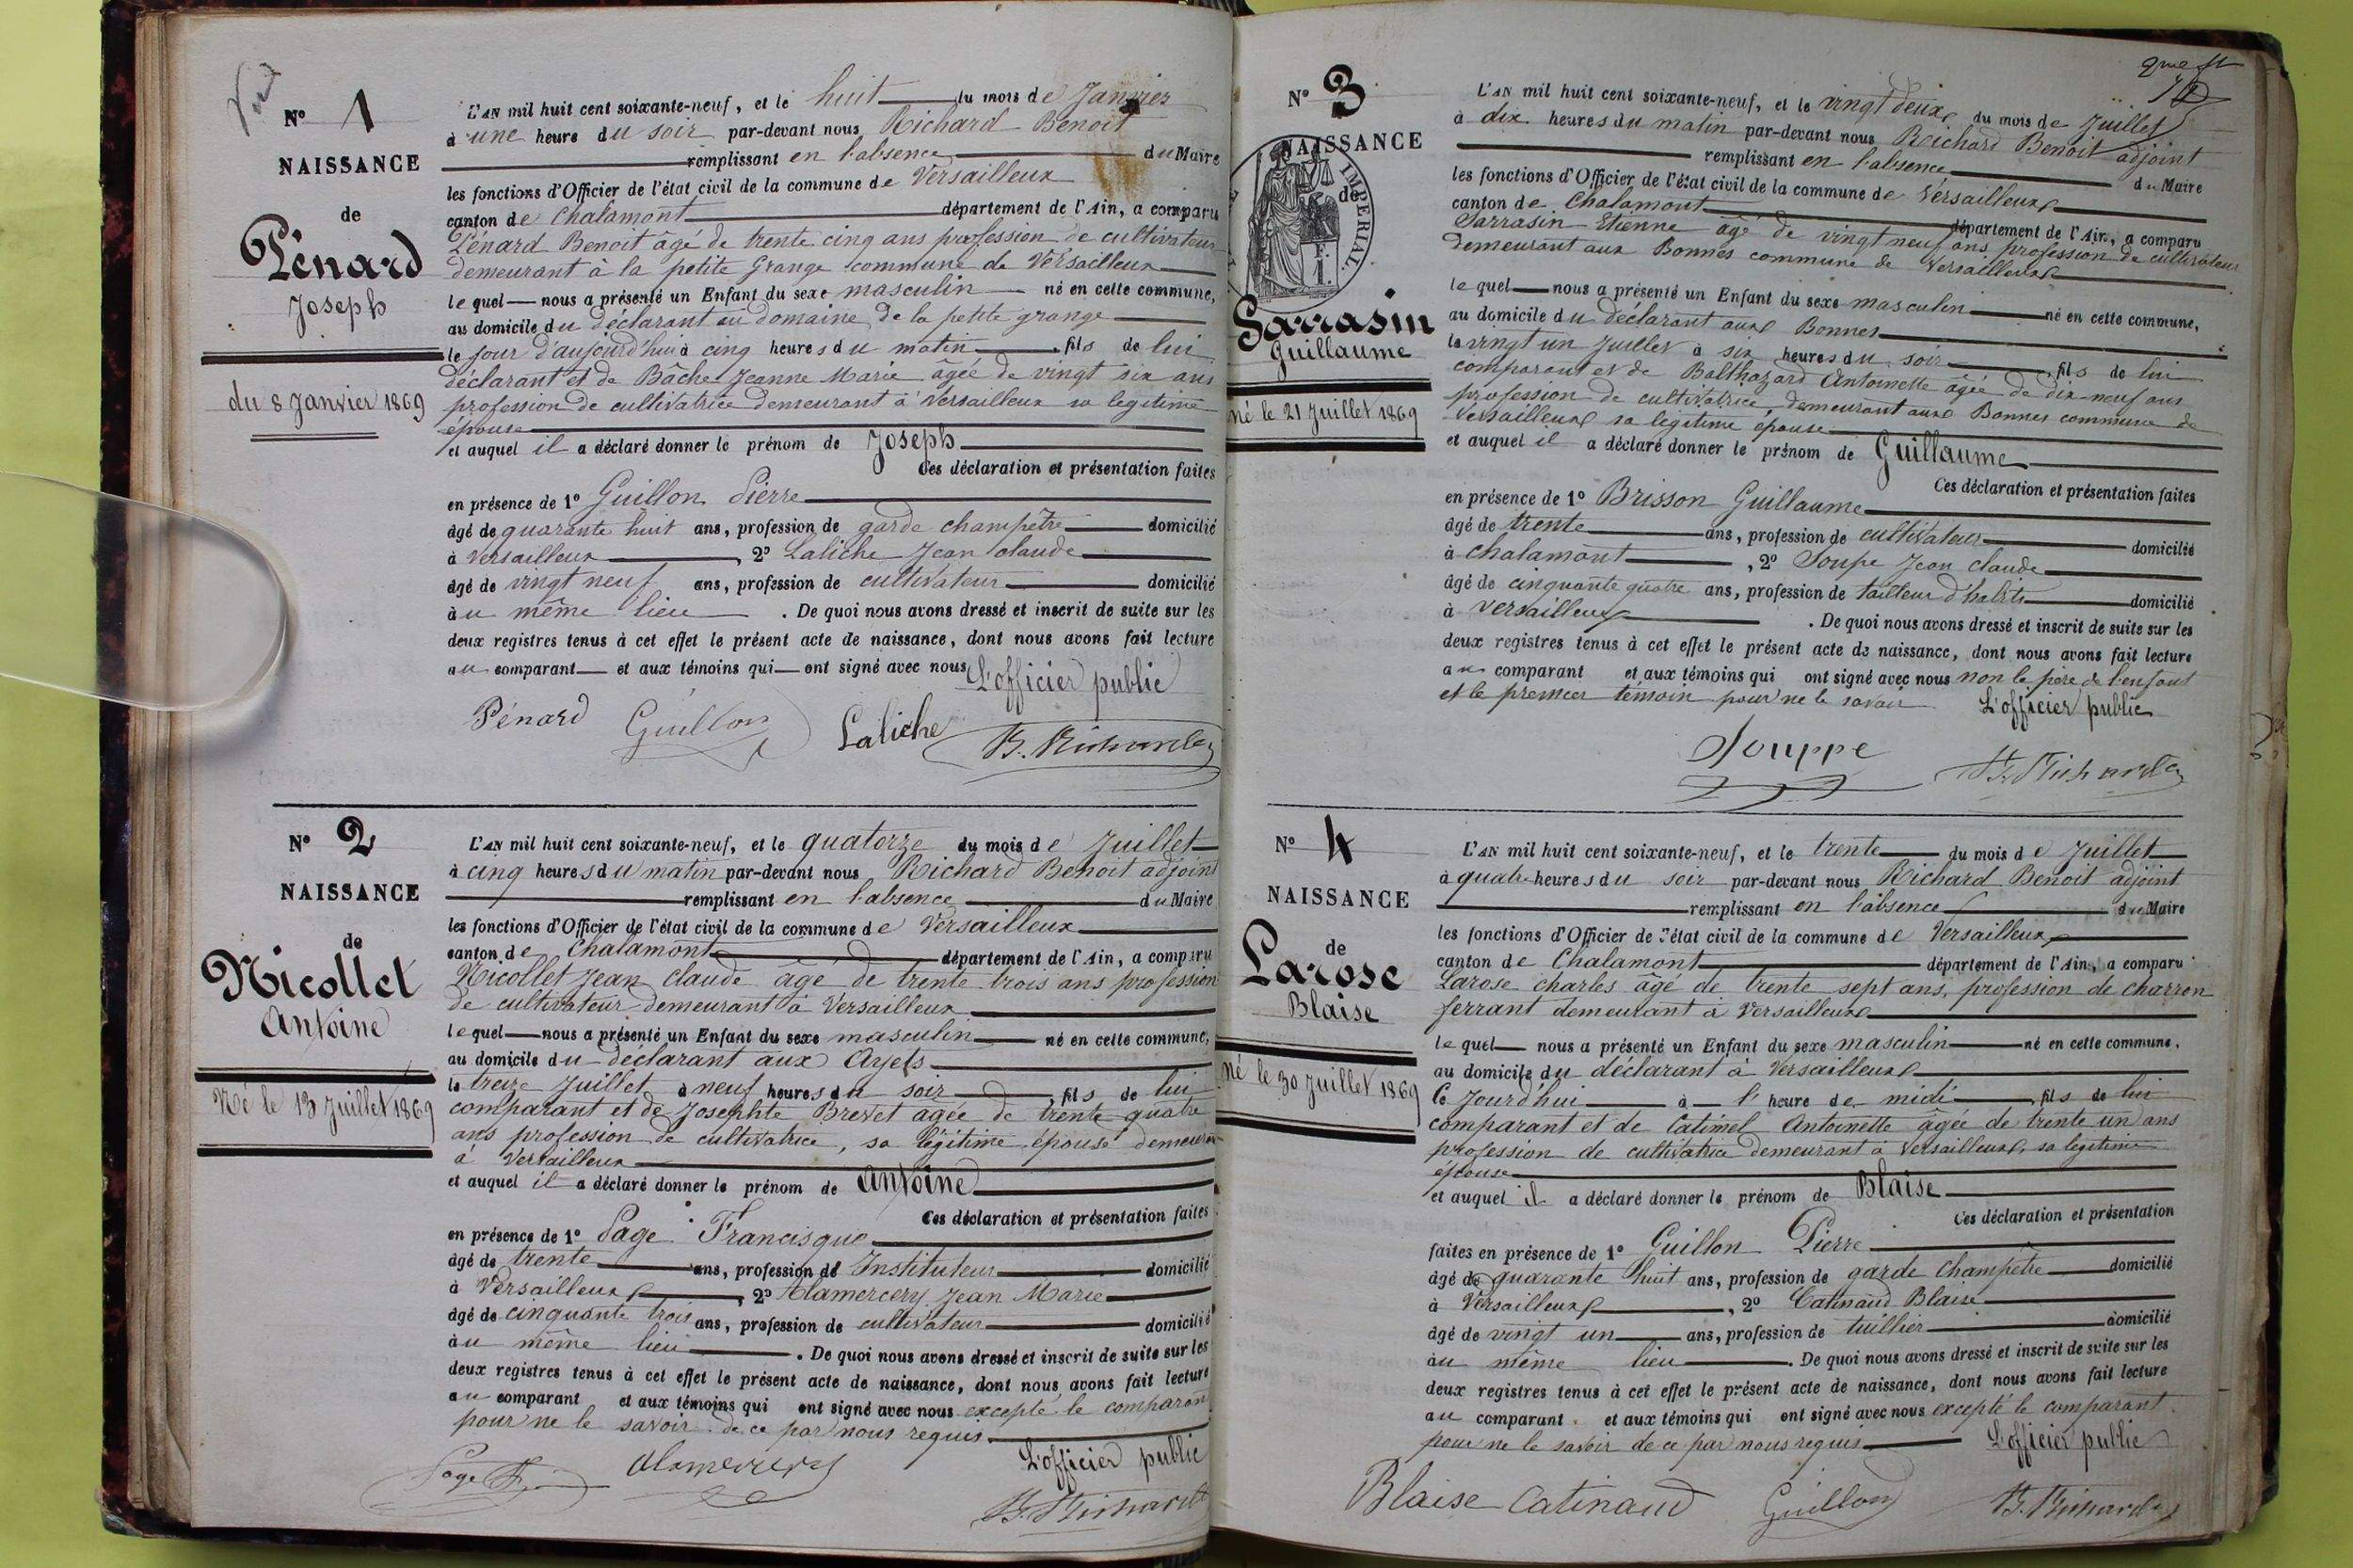 Vu
N° 1
NAISSANCE
de
Pénard
Joseph
du 8 Janvier 1869
L'AN mil huit cent soixante-neuf, et le huit du mois de Janvier
à une heure du soir par-devant nous Richard Benoit
remplissant en l'absence du Maire
les fonctions d'Officier de l'état civil de la commune de Versailleux
canton de Chalamont département de l'Ain, a comparu
Pénard Benoit âgé de trente cinq ans profession de cultivateur
demeurant à la petite Grange commune de Versailleux
lequel nous a présenté un Enfant du sexe masculin né en cette commune,
au domicile du déclarant au domaine de la petite grange
le jour d'aujourd'hui à cinq heures du matin, fils de lui
déclarant et de Bâche Jeanne Marie agée de vingt six ans
profession de cultivatrice demeurant à Versailleux sa legitime
épouse
et auquel il a déclaré donner le prénom de Joseph
Ces déclaration et présentation faites
en présence de 1° Guillon Pierre
âgé de quarante huit ans, profession de garde champêtre domicilié
à Versailleux, 2° Laliche Jean claude
âgé de vingt neuf ans, profession de cultivateur domicilié
au même lieu. De quoi nous avons dressé et inscrit de suite sur les
deux registres tenus à cet effet le présent acte de naissance, dont nous avons fait lecture
au comparant et aux témoins qui ont signé avec nous
L'officier public
Pénard Guillon Laliche B. Richard
N° 2
NAISSANCE
de
Nicollet
Antoine
Né le 13 Juillet 1869
L'AN mil huit cent soixante-neuf, et le quatorze du mois de Juillet
à cinq heures du matin par-devant nous Richard Benoit adjoint
remplissant en l'absence du Maire
les fonctions d'Officier de l'état civil de la commune de Versailleux
canton de Chalamont département de l'Ain, a comparu
Nicollet Jean claude âgé de trente trois ans profession
de cultivateur demeurant à Versailleux
lequel nous a présenté un Enfant du sexe masculin né en cette commune,
au domicile du déclarant aux
le treize Juillet à neuf heures du soir, fils de lui
comparant et de Josephte Brevet agée de trente quatre
ans profession de cultivatrice, sa légitime épouse demeurant
à Versailleux
et auquel il a déclaré donner le prénom de Antoine
Ces déclaration et présentation faites
en présence de 1° Page Francisque
âgé de trente ans, profession de Instituteur domicilié
à Versailleux, 2° Alamercery Jean Marie
âgé de cinquante trois ans, profession de cultivateur domicilié
au même lieu. De quoi nous avons dressé et inscrit de suite sur les
deux registres tenus à cet effet le présent acte de naissance, dont nous avons fait lecture
au comparant et aux témoins qui ont signé avec nous excepté le comparant
pour ne le savoir de ce par nous requis.
L'officier public
Page F. Alamercery B. Richard
N° 3
NAISSANCE
de
IMPERIAL.
Sarrasin
Guillaume
né le 21 Juillet 1869
L'AN mil huit cent soixante-neuf, et le vingt deux du mois de Juillet
à dix heures du matin par-devant nous Richard Benoit adjoint
remplissant en l'absence du Maire
les fonctions d'Officier de l'état civil de la commune de Versailleux
canton de Chalamont département de l'Ain, a comparu
Sarrasin Etienne âgé de vingt neuf ans profession de cultivateur
demeurant aux Bonnes commune de Versailleux
lequel nous a présenté un Enfant du sexe masculin né en cette commune,
au domicile du déclarant aux Bonnes
le vingt un Juillet à six heures du soir, fils de lui
comparant et de Balthazard Antoinette âgée de dix-neuf ans
profession de cultivatrice, demeurant aux Bonnes commune de
Versailleux sa légitime épouse
et auquel il a déclaré donner le prénom de Guillaume
Ces déclaration et présentation faites
en présence de 1° Brisson Guillaume
âgé de trente ans, profession de cultivateur domicilié
à Chalamont, 2° Soupe Jean claude
âgé de cinquante quatre ans, profession de tailleur d'habits domicilié
à Versailleux. De quoi nous avons dressé et inscrit de suite sur les
deux registres tenus à cet effet le présent acte de naissance, dont nous avons fait lecture
au comparant et aux témoins qui ont signé avec nous non le père de l'enfant
et le premier témoin pour ne le savoir
L'officier public
Souppe B. Richard
N° 4
NAISSANCE
de
Larose
Blaise
né le 30 Juillet 1869
L'AN mil huit cent soixante-neuf, et le trente du mois de Juillet
à quatre heures du soir par-devant nous Richard Benoit adjoint
remplissant en l'absence du Maire
les fonctions d'Officier de l'état civil de la commune de Versailleux
canton de Chalamont département de l'Ain, a comparu
Larose charles âgé de trente sept ans, profession de charron
ferrant demeurant à Versailleux
lequel nous a présenté un Enfant du sexe masculin né en cette commune,
au domicile du déclarant à Versailleux
le Jourd'hui à l'heure de midi, fils de lui
comparant et de Catimel Antoinette âgée de trente un ans
profession de cultivatrice demeurant à Versailleux, sa legitime
épouse
et auquel il a déclaré donner le prénom de Blaise
Ces déclaration et présentation
faites en présence de 1° Guillon Pierre
âgé de quarante huit ans, profession de garde champêtre domicilié
à Versailleux, 2° Catinaud Blaise
âgé de vingt un ans, profession de tuillier domicilié
au même lieu. De quoi nous avons dressé et inscrit de suite sur les
deux registres tenus à cet effet le présent acte de naissance, dont nous avons fait lecture
au comparant et aux témoins qui ont signé avec nous excepté le comparant
pour ne le savoir de ce par nous requis
L'officier public
Blaise Catinaud Guillon B. Richard